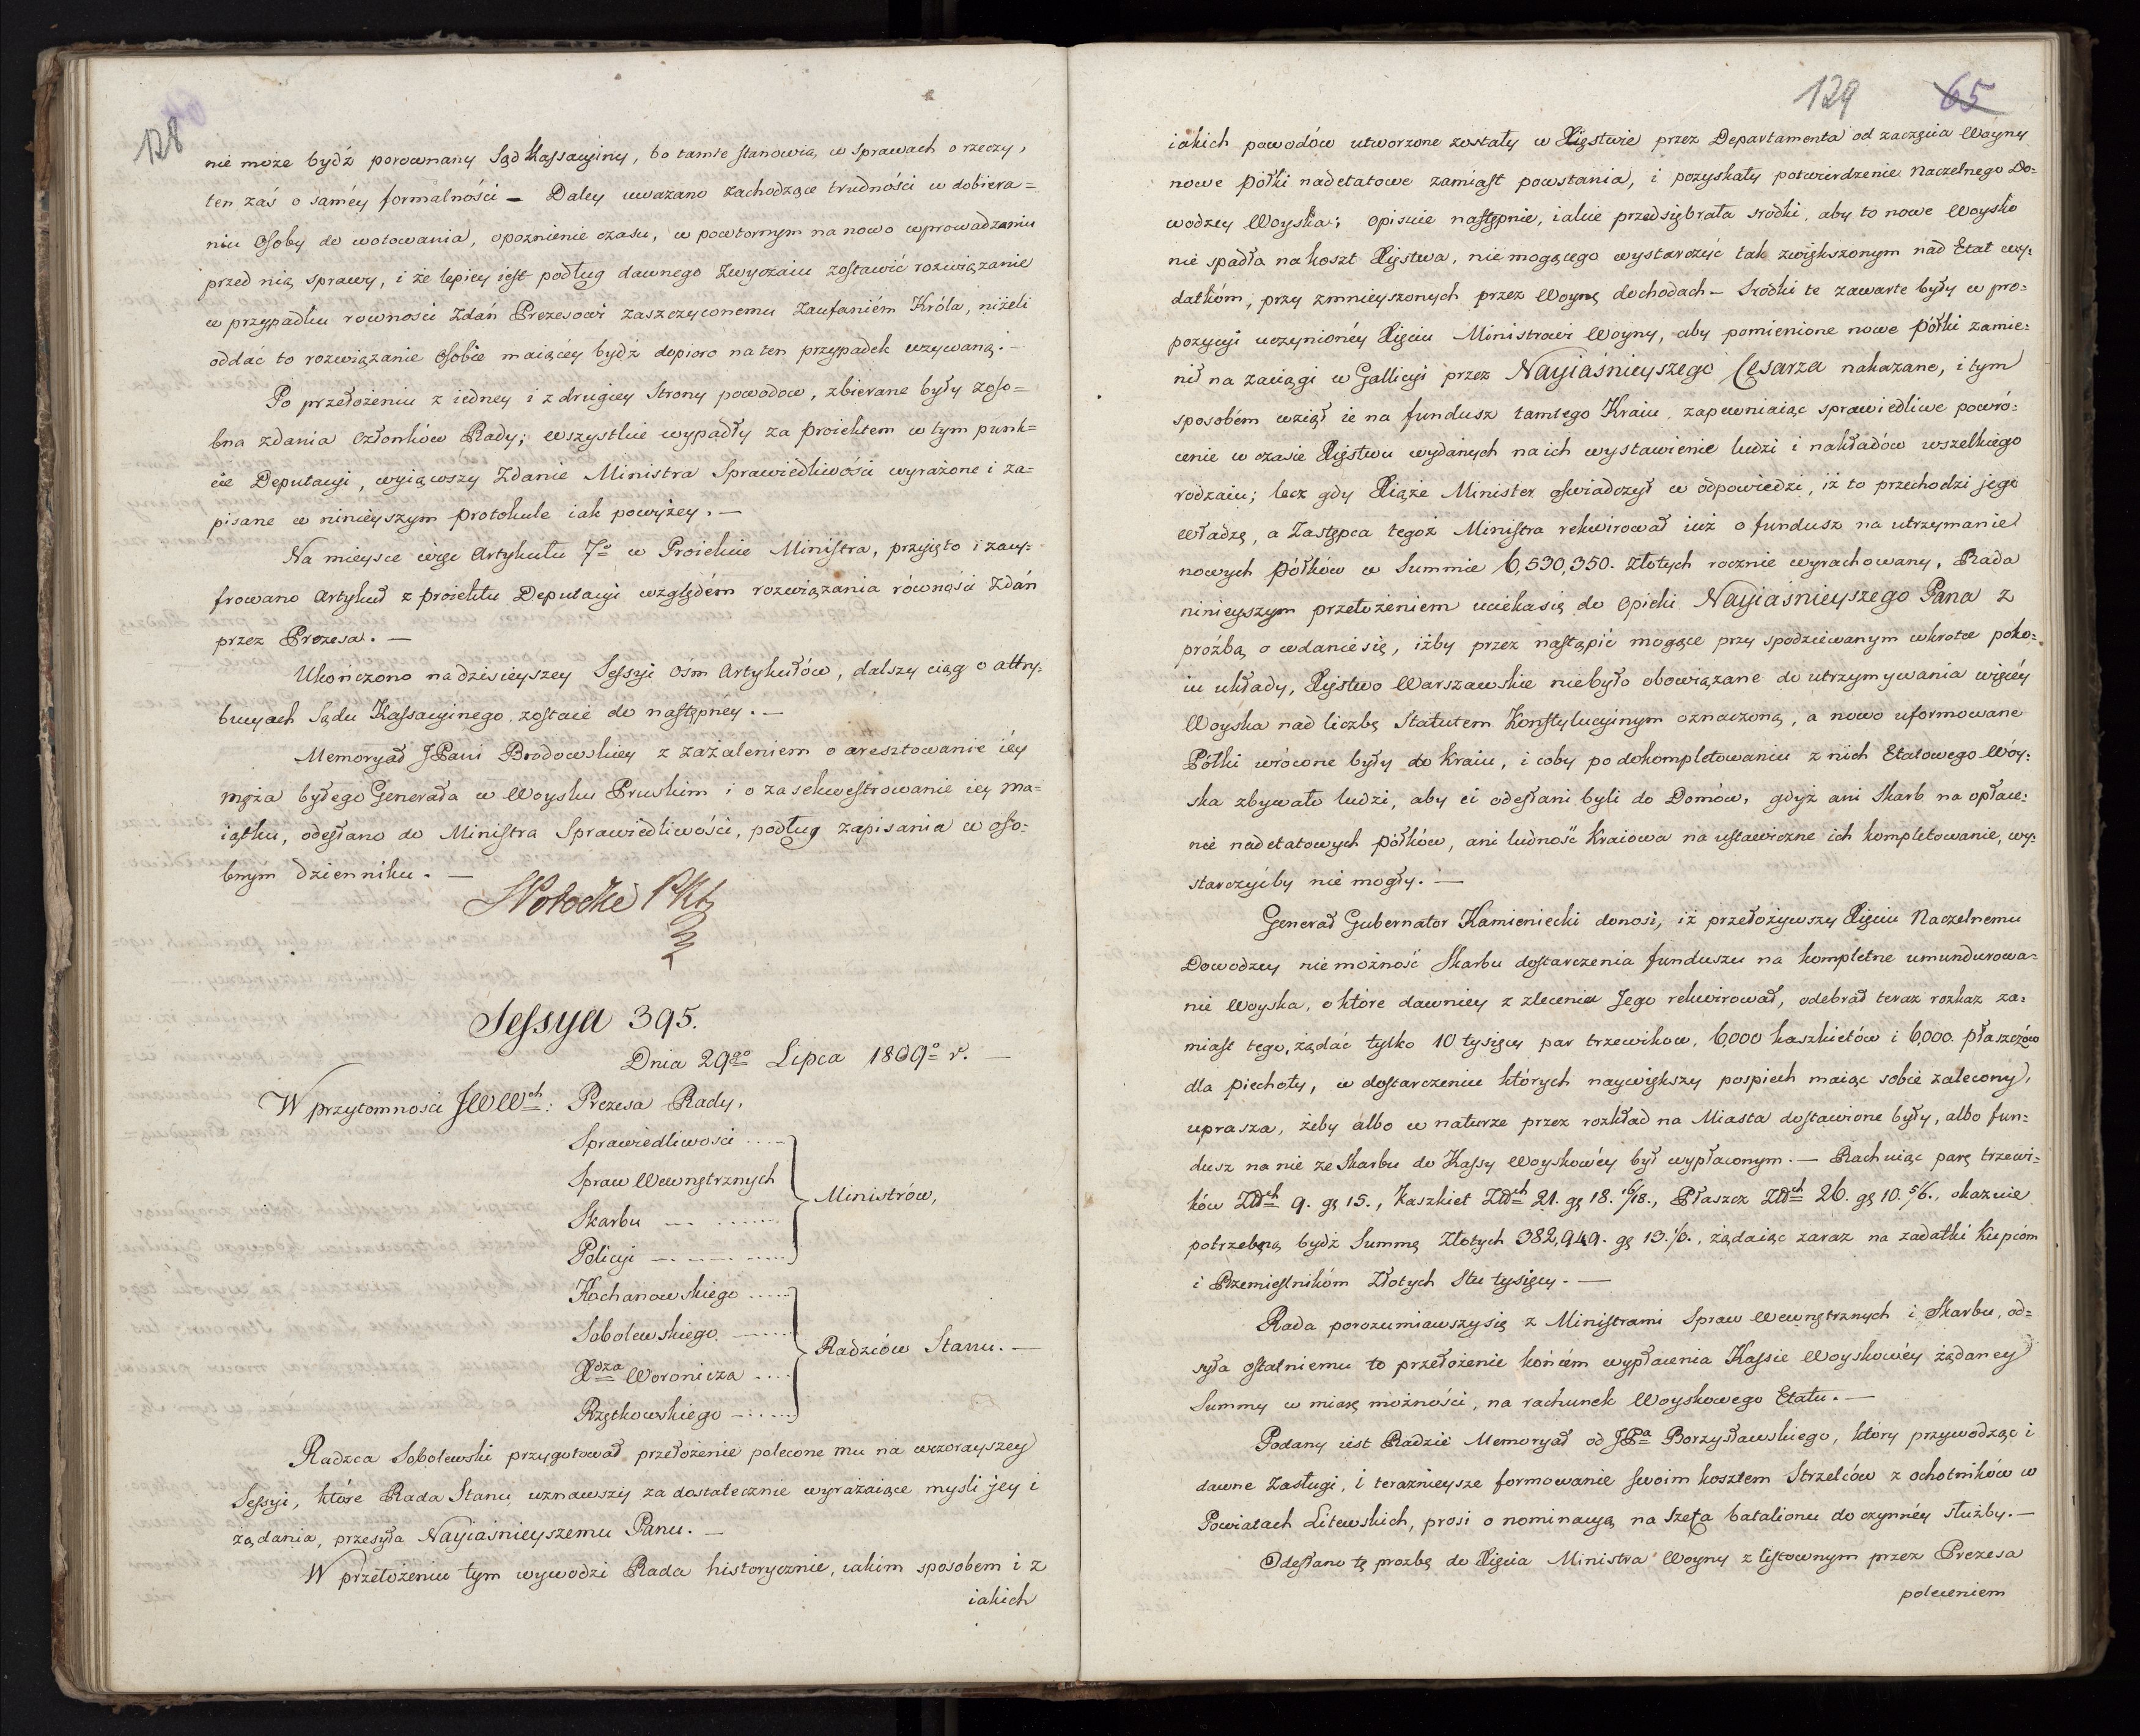 128
nie może bydź porownany Sąd Kassacyiny, bo tamte stanowią w sprawach o rzeczy,
ten zaś o saméy formalności – Daley uwazano zachodzące trudności w dobiera=
niu osoby do wotowania, opoznienie czasu, w powtornym na nowo wprowadzeniu
przed nią sprawy, i że lepiey iest podług dawnego zwyczaiu zostawić rozwiązanie
w przypadku rowności zdań Prezesowi zaszczyconemu zaufaniém Króla, niżeli
oddać to rozwiązanie osobie maiącéy bydź dopioro na ten przypadek wzywaną. –
Po przełożeniu z iedney i z drugiey strony powodow, zbierane były zoso=
bna zdania członków Rady; wszystkie wypadły za proiektem w tym punk=
cie Deputacyi, wyiąwszy zdanie Ministra Sprawiedliwości wyrażone i za=
pisane w ninieyszym protokule iak powyżey. –
Na mieysce więc Artykułu 7o w Proiekcie Ministra, przyięto i zaty=
frowano Artykuł z proiektu Deputacyi względém rozwiązania równości zdań
przez Prezesa. –
Ukończono na dzisieyszey Sessyi osm Artykułów, dalszy ciąg o attry=
bucyach Sądu Kassacyinego zostaie do następnéy. –
Memoryał JPani Brodowskiey z zażaleniem o aresztowanie iéy
męża byłego Generała w Woysku Pruskim i o zasekwestrowanie iéy ma=
iątku, odesłano do Ministra Sprawiedliwości, podług zapisania w oso=
bnym dzienniku. –
Sessya 395.
Dnia 29go Lipca 1809o r. –
W przytomnosci JWWch: Prezesa Rady,
Sprawiedliwosci
Spraw Wewnętrznych
Skarbu
Policyi
Ministrów,
Kochanowskiego
Sobolewskiego
Xdza Woronicza
Rzętkowskiego
Radzców Stanu. –
Radzca Sobolewski przygotował przełożenie polecone mu na wczorayszey
Sessyi, które Rada Stanu uznawszy za dostatecznie wyrażaiące mysli jéy i
żądania, przesyła Nayiaśnieyszemu Panu. –
W przełożeniu tym wywodzi Rada historycznie, iakim sposobem i z
iakich
129 65
iakich powodów utworzone zostały w Xięstwie przez Departamenta od zaczęcia Woyny
nowe półki nadetatowe zamiast powstania, i pozyskały potwierdzenie Naczelnego Do=
wodzcy Woyska; opisuie następnie, iakie przedsiębrała srodki, aby to nowe Woysko
nie spadło na koszt Xięstwa, nie mogącego wystarczyć tak zwiększonym nad Etat wy=
datkóm, przy zmnieyszonych przez Woynę dochodach – Srodki te zawarte były w pro=
pozycyi uczynionéy Xięciu Ministrowi Woyny, aby pomienione nowe półki zamie=
nił na zaciągi w Gallicyi przez Nayiaśnieyszego Cesarza nakazane, i tym
sposobém wziął ie na fundusz tamtego Kraiu, zapewniaiąc sprawiedliwe powró=
cenie w czasie Xięstwu wydanych na ich wystawienie ludzi i nakładów wszelkiego
rodzaiu; lecz gdy Xiąże Minister oświadczył w odpowiedzi, iż to przechodzi jego
władzę, a Zastępca tegoż Ministra rekwirował iuż o fundusz na utrzymanie
nowych półków w Summie 6,530,350. złotych rocznie wyrachowany, Rada
ninieyszym przełożeniem ucieka się do opieki Nayiaśnieyszego Pana z
prózbą o wdanie się, iżby przez nastąpić mogące przy spodziewanym wkrotce poko=
iu układy, Xięstwo Warszawskie niebyło obowiązane do utrzymywania więcéy
Woyska nad liczbę Statutem Konstytucyinym oznaczoną, a nowo uformowane
Półki wrócone były do Kraiu, i coby po dokompletowaniu z nich Etatowego Wóy=
ska zbywało ludzi, aby ci odesłani byli do Domów, gdyż ani Skarb na opłace=
nie nadetatowych półków, ani ludność Kraiowa na ustawiczne ich kompletowanie, wy=
starczyćby nie mogły. –
Generał Gubernator Kamieniecki donosi, iż przełożywszy Xięciu Naczelnemu
Dowodzcy niemożność Skarbu dostarczenia funduszu na kompletne umundurowa=
nie Woyska, o które dawniey z zlecenia Jego rekwirował, odebrał teraz rozkaz za=
miast tego, żądać tylko 10 tysięcy par trzewikow, 6,000 kaszkietów i 6,000. płaszczów
dla piechoty, w dostarczeniu których naywiększy pospiech maiąc sobie zalecony,
uprasza, żeby albo w naturze przez rozkład na Miasta dostawione były, albo fun=
dusz na nie ze Skarbu do Kassy Woyskowéy był wypłaconym. – Rachuiąc parę trzewi=
ków Złłch 9. gę 15., Kaszkiet Złłch 21. gę 18. 16/18., Płaszcz Złłch 26. gę 10. 5/6., okazuie
potrzebną bydź Summę Złotych 382,949. gę 13.1/3., żądaiąc zaraz na zadatki Kupcóm
i Rzemieslnikóm Złotych Stu tysięcy. –
Rada porozumiawszy się z Ministrami Spraw Wewnętrznych i Skarbu, od=
syła ostatniemu to przełożenie końcém wypłacenia Kassie Woyskowéy żądaney
Summy w miarę możności, na rachunek Woyskowego Etatu. –
Podany iest Radzie Memoryał od JPa Borzysławskiego, który przywodząc i
dawne zasługi, i teraznieysze formowanie swoim kosztem Strzelców z ochotników w
Powiatach Litewskich, prosi o nominacyą na Szefa batalionu do czynnéy służby. –
Odesłano tę prozbę do Xięcia Ministra Woyny z listownym przez Prezesa
poleceniem